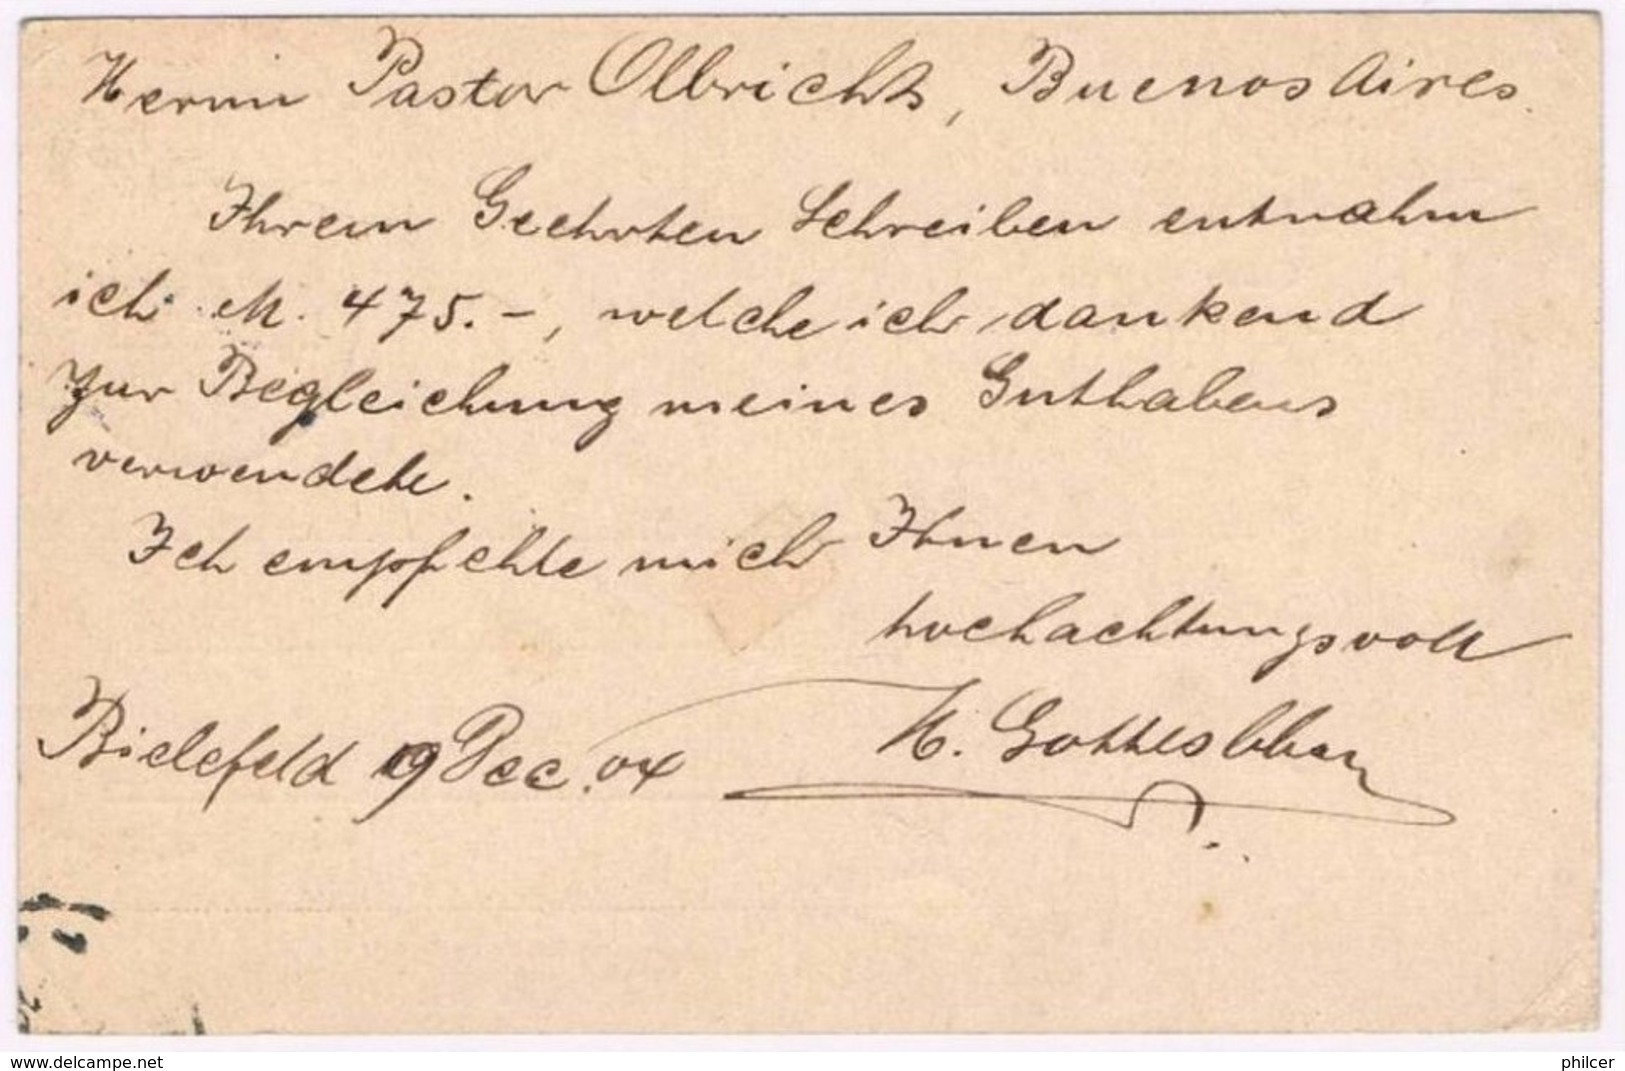 Herrn Pastor Olbricht, Buenos Aires.
Ihrem Geehrten Schreiben entnahm
ich M. 475.-, welche ich dankend
zur Begleichung meines Guthabens
verwendete.
Ich empfehle mich Ihnen
hochachtungsvoll
H.
Bielefeld 9 Dec. 04
www.delcampe.net
philcer